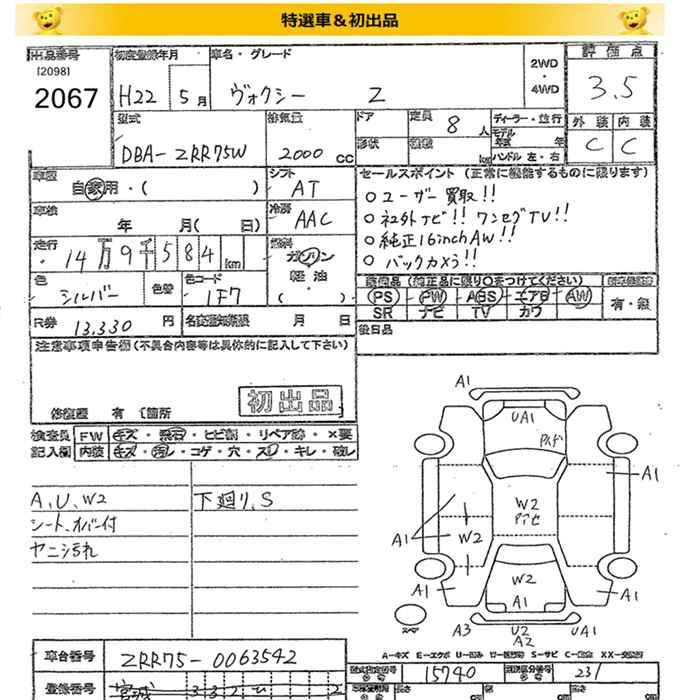 特選車&初出品
出品番号
[2098]
2067
初度登録年月
H22 5月
車名・グレード
ヴォクシー Z
2WD
・
4WD
評価点
3.5
外装 内装
C C
型式
DBA-ZRR75W
排気量
2000 CC
ドア
形状
定員
8人
ディーラー・並行
モデル
年式 年
ハンドル 左・右
車歴
自家用・( )
シフト
AT
車検
年 月( 日)
冷房
AAC
走行
14万9千584km
燃料
ガソリン
軽油
( )
色
シルバー
色替
色コード
1F7
R券
13,330円
名変通知期限 月 日
セールスポイント (正常に機能するものに限ります)
○ユーザー買取!!
○社外ナビ!! ワンセグTV!!
○純正16inchAW!!
○バックカメラ!!
装備品(純正品に限り○をつけてください)
PS PW ABS エアB AW
SR ナビ TV カワ
有・無
後日品
注意事項申告欄(不具合内容等は具体的に記入して下さい)
修復歴 有 [箇所
初出品
検査員 FW キズ・飛石・ヒビ割・リペア跡・×要
記入欄 内装 キズ・汚レ・コゲ・穴・スレ・キレ・破レ
A,U,W2
シート、オバー付
ヤニ汚れ
下廻り,S
A1
UA1
A1
W2
W2
A1
W2
A1
A1
A1
A3
U2
A2
UA1
スペア
A-キズ E-エクボ U-凹み W-板金跡 S-サビ C-腐食 XX-交換済
車台番号
ZRR75-0063542
登録番号
宮城
型式指定番号
15740
類別区分番号
231